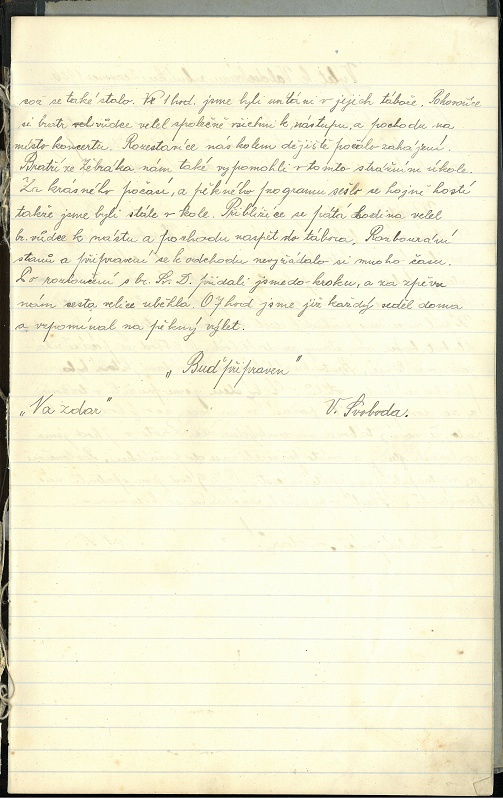 což se také stalo. Ve 1 hod. jsme byli uvítáni v jejich táboře. Pohovoříce
si bratr vůdce velel společně všichni k nástupu, a pochodu na
místo koncertu. Rozestavíce nás kolem dějiště počalo zahájení.
Bratři ze Žebráka nám také vypomohli v tomto strážním úkole.
Za krásného počasí, a pěkného programu sešlo se hojně hostí
takže jsme byli stále v kole. Přiblížíce se pátá hodina velel
br. vůdce k návstu a pochodu naspět do tábora. Rozbourání
stanů a připravení se k odchodu nevyžádalo si mnoho času.
Po rozloučení s br. Sv. D. přidali jsme do kroku, a za zpěvu
nám cesta velice uběhla. O 7 hod jsme již každý seděl doma
a vzpomínal na pěkný výlet.
„Buď připraven"
„Na zdar" V. Svoboda.